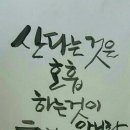 산다는 것은
호흡
하는것이